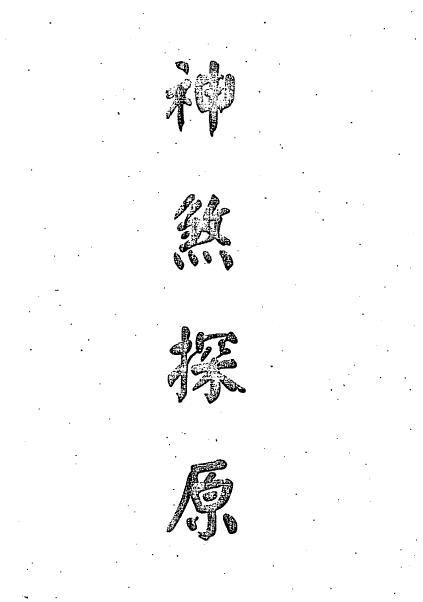 神煞探原